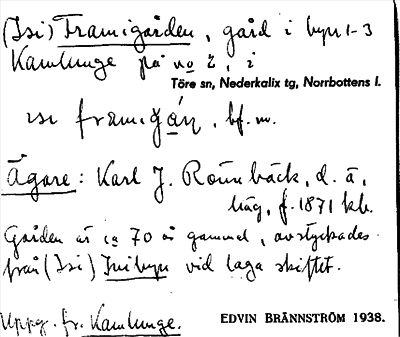 (Isi) Framigården, gård i byn 1-3
Kamlunge på no 2, i
Töre sn, Nederkalix tg, Norrbottens l.
ısı framıgán, bf. m.
Ägare: Karl J. Rönnbäck, d. ä,
häg, f. 1871 kb.
Gården är ca 70 år gammal, avstyckades
från (Isi) Inibyn vid laga skiftet.
Uppg. fr. Kamlunge.
EDVIN BRÄNNSTRÖM 1938.